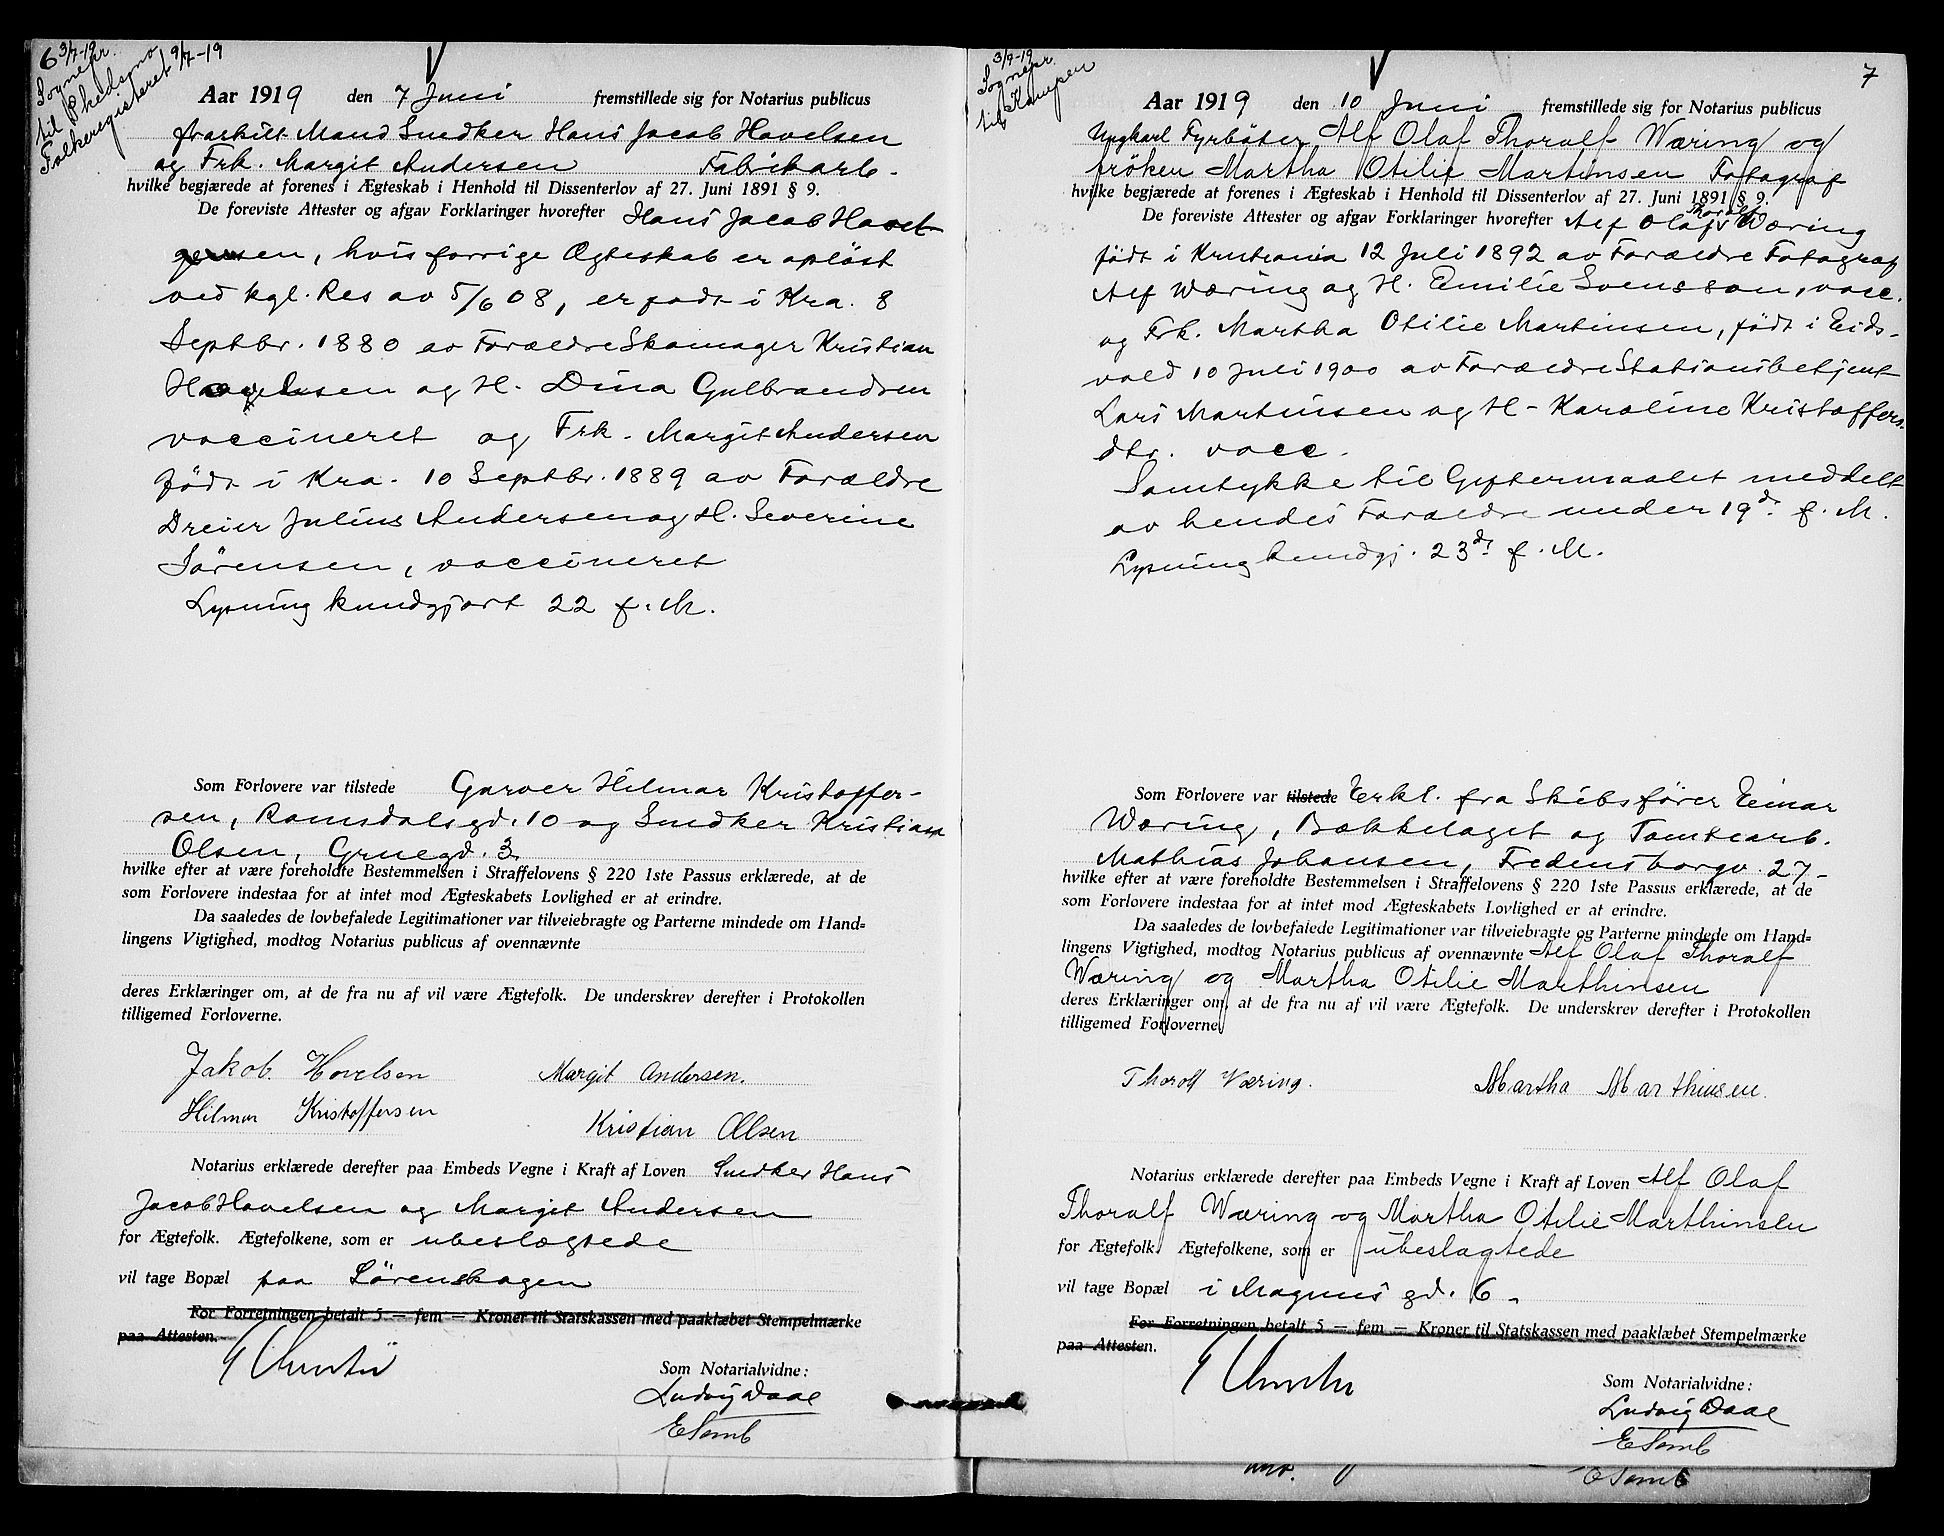 6
3/7-19
Sognepr.
til Skedsmo
Folkeregisteret 9/7-19
Aar 1919 den 7 Juni fremstillede sig for Notarius publicus
fraskilt Mand Snedker Hans Jacob Havelsen
og Frk. Margit Andersen Fabrikarb.
hvilke begjærede at forenes i Ægteskab i Henhold til Dissenterlov af 27. Juni 1891 § 9.
De foreviste Attester og afgav Forklaringer hvorefter Hans Jacob Havel-
sen, hvis forrige Ægteskab er opløst
ved kgl. Res av 5/6 08, er født i Kra. 8
Septbr. 1880 av Forældre Skomager Kristian
og H. Dina Gulbrandsen
vaccineret og Frk. Margit Andersen
født i Kra. 10 Septbr. 1889 av Forældre
Dreier Julius Andersen og H. Severine
Sørensen, vaccineret
Lysning kundgjort 22 f. M.
Som Forlovere var tilstede Garver Hilmar Kristoffer-
sen, Ramsdalsgd. 10 og Snedker Kristian
Olsen, Gruegd. 3
hvilke efter at være foreholdte Bestemmelsen i Straffelovens § 220 1ste Passus erklærede, at de
som Forlovere indestaa for at intet mod Ægteskabets Lovlighed er at erindre.
Da saaledes de lovbefalede Legitimationer var tilveiebragte og Parterne mindede om Hand=
lingens Vigtighed, modtog Notarius publicus af ovennævnte
deres Erklæringer om, at de fra nu af vil være Ægtefolk. De underskrev derefter i Protokollen
tilligemed Forloverne.
Jakob. Hovelsen Margit Andersen.
Hilmar Kristoffersen Kristian Olsen
Notarius erklærede derefter paa Embeds Vegne i Kraft af Loven Snedker Hans
Jacob Havelsen og Margit Andersen
for Ægtefolk. Ægtefolkene, som er ubeslægtede
vil tage Bopæl paa Lørenskogen
For Forretningen betalt 5 — fem — Kroner til Statskassen med paaklæbet Stempelmærke
paa Attesten.
Som Notarialvidne:
Ludvig Daae
E Samb
3/9-19
Sognepr.
til Kampen
7
Aar 1919 den 10 Juni fremstillede sig for Notarius publicus
Ungkarl Fyrbøter Alf Olaf Thoralf Wæring og
frøken Martha Otilie Martinsen Fotograf
hvilke begjærede at forenes i Ægteskab i Henhold til Dissenterlov af 27. Juni 1891 § 9.
De foreviste Attester og afgav Forklaringer hvorefter Alf Olaf Thoralf Wæring
født i Kristiania 12 Juli 1892 av Forældre Fotograf
Alf Wæring og H. Emilie Svensson, vacc.
og Frk. Martha Otilie Martinsen, født i Eids-
vold 10 Juli 1900 av Forældre Stationsbetjent
Lars Martinsen og H. Karoline Kristoffers.
dtr. vacc.
Samtykke til Giftermaalet meddelt
av hendes Forældre under 19d. f. M.
Lysning kundgj. 23d. f. M.
Som Forlovere var tilstede Erkl. fra Skibsfører Einar
Wæring, Bækkelaget og Tomtearb.
Mathias Johansen, Fredensborgv. 27-
hvilke efter at være foreholdte Bestemmelsen i Straffelovens § 220 1ste Passus erklærede, at de
som Forlovere indestaa for at intet mod Ægteskabets Lovlighed er at erindre.
Da saaledes de lovbefalede Legitimationer var tilveiebragte og Parterne mindede om Hand=
lingens Vigtighed, modtog Notarius publicus af ovennævnte Alf Olaf Thoralf
Wæring og Martha Otilie Marthinsen
deres Erklæringer om, at de fra nu af vil være Ægtefolk. De underskrev derefter i Protokollen
tilligemed Forloverne
Thorolf Wæring. Martha Marthinsen.
Notarius erklærede derefter paa Embeds Vegne i Kraft af Loven Alf Olaf
Thoralf Wæring og Martha Otilie Marthinsen
for Ægtefolk. Ægtefolkene, som er ubeslagtede
vil tage Bopæl i Magnus gd. 6.
For Forretningen betalt 5 — fem — Kroner til Statskassen med paaklæbet Stempelmærke
paa Attesten.
Som Notarialvidne:
Ludvig Daae
E Samb
E Samb